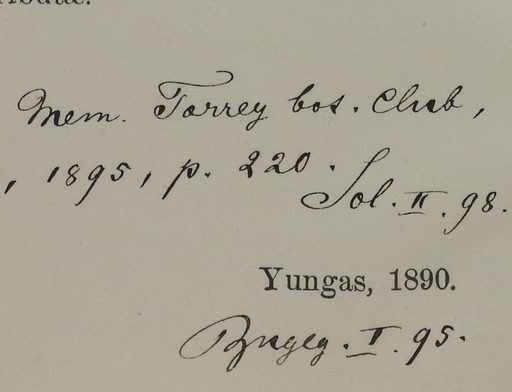 Mem. Torrey bot. Club,
, 1895, p. 220.
Sol. II. 98.
Yungas, 1890.
I. 95.